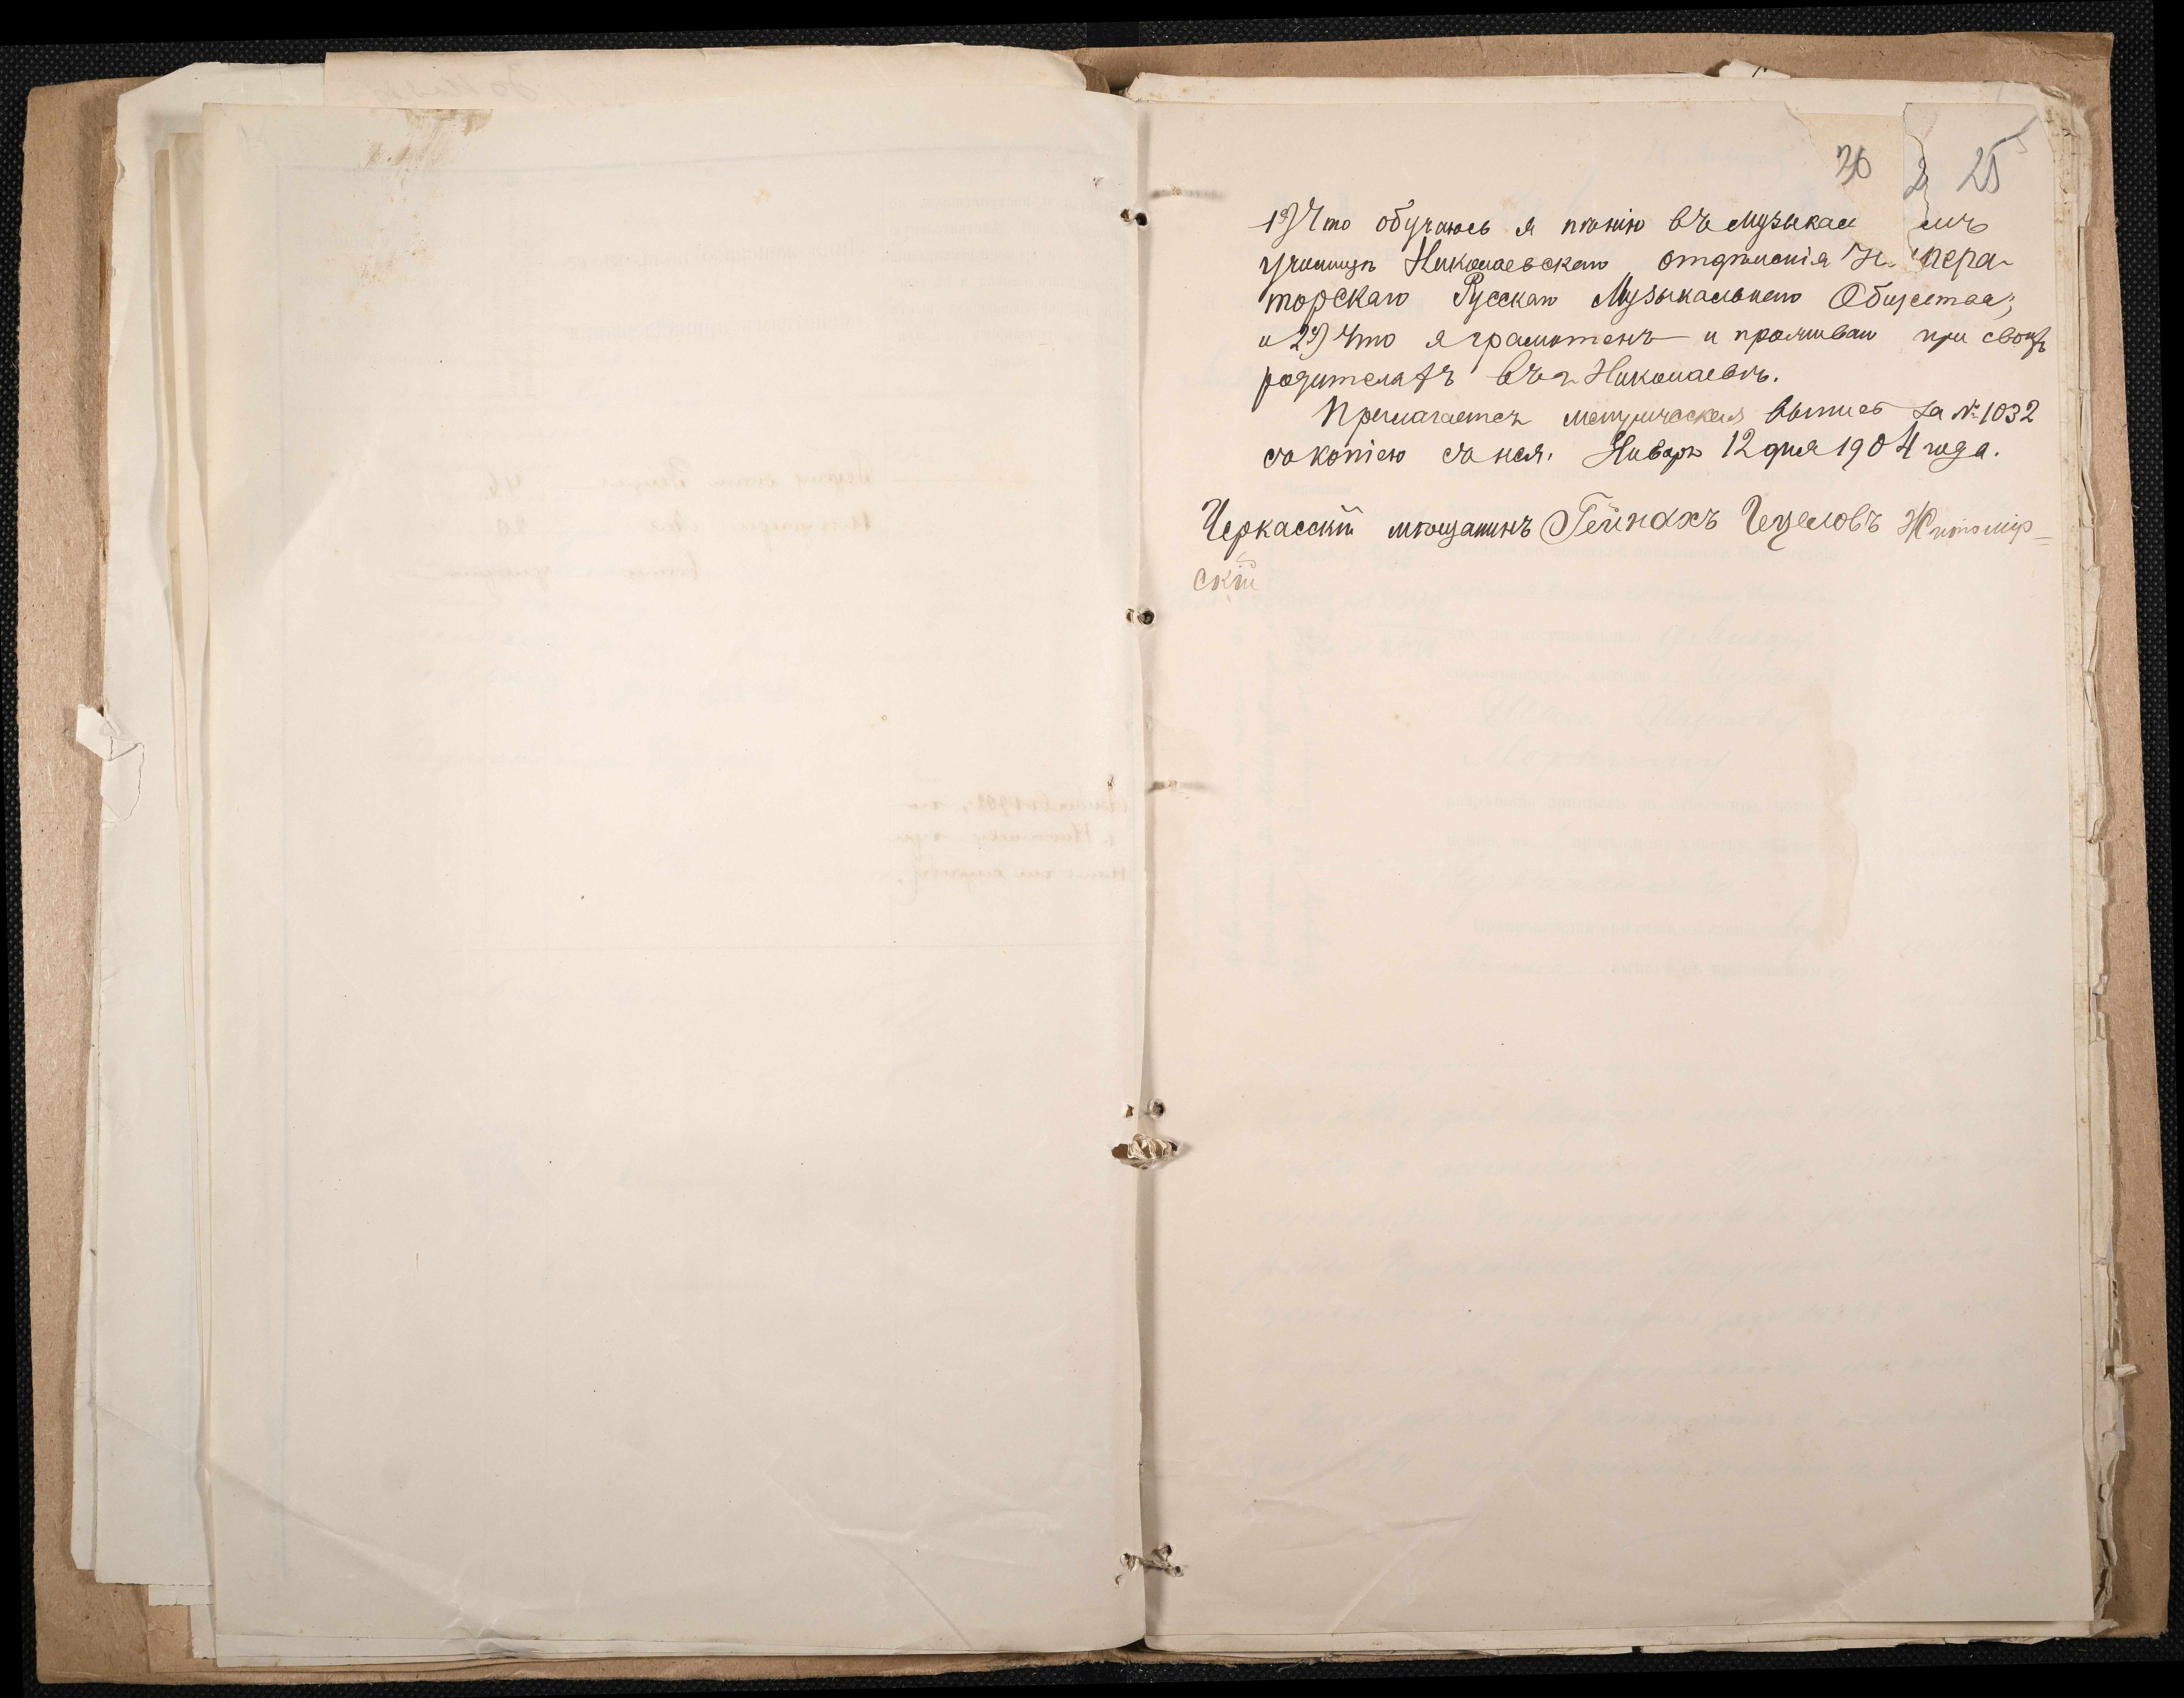 30 2 25
1º) Что обучаюсь я пѣнію въ Музыкал омъ
училищѣ Николаевскаго отдѣленія И пера-
торскаго Русскаго Музыкальнаго Общества;
и 2º) Что я грамотенъ и проживаю при своихъ
родителяхъ въ г. Николаевѣ.
Прилагается метрическая выпись за № 1032
съ копіею съ нея. Январь 12 дня 1904 года.
Черкасскій мѣщанинъ Гейнахъ Гецеловъ Житомір-
скій